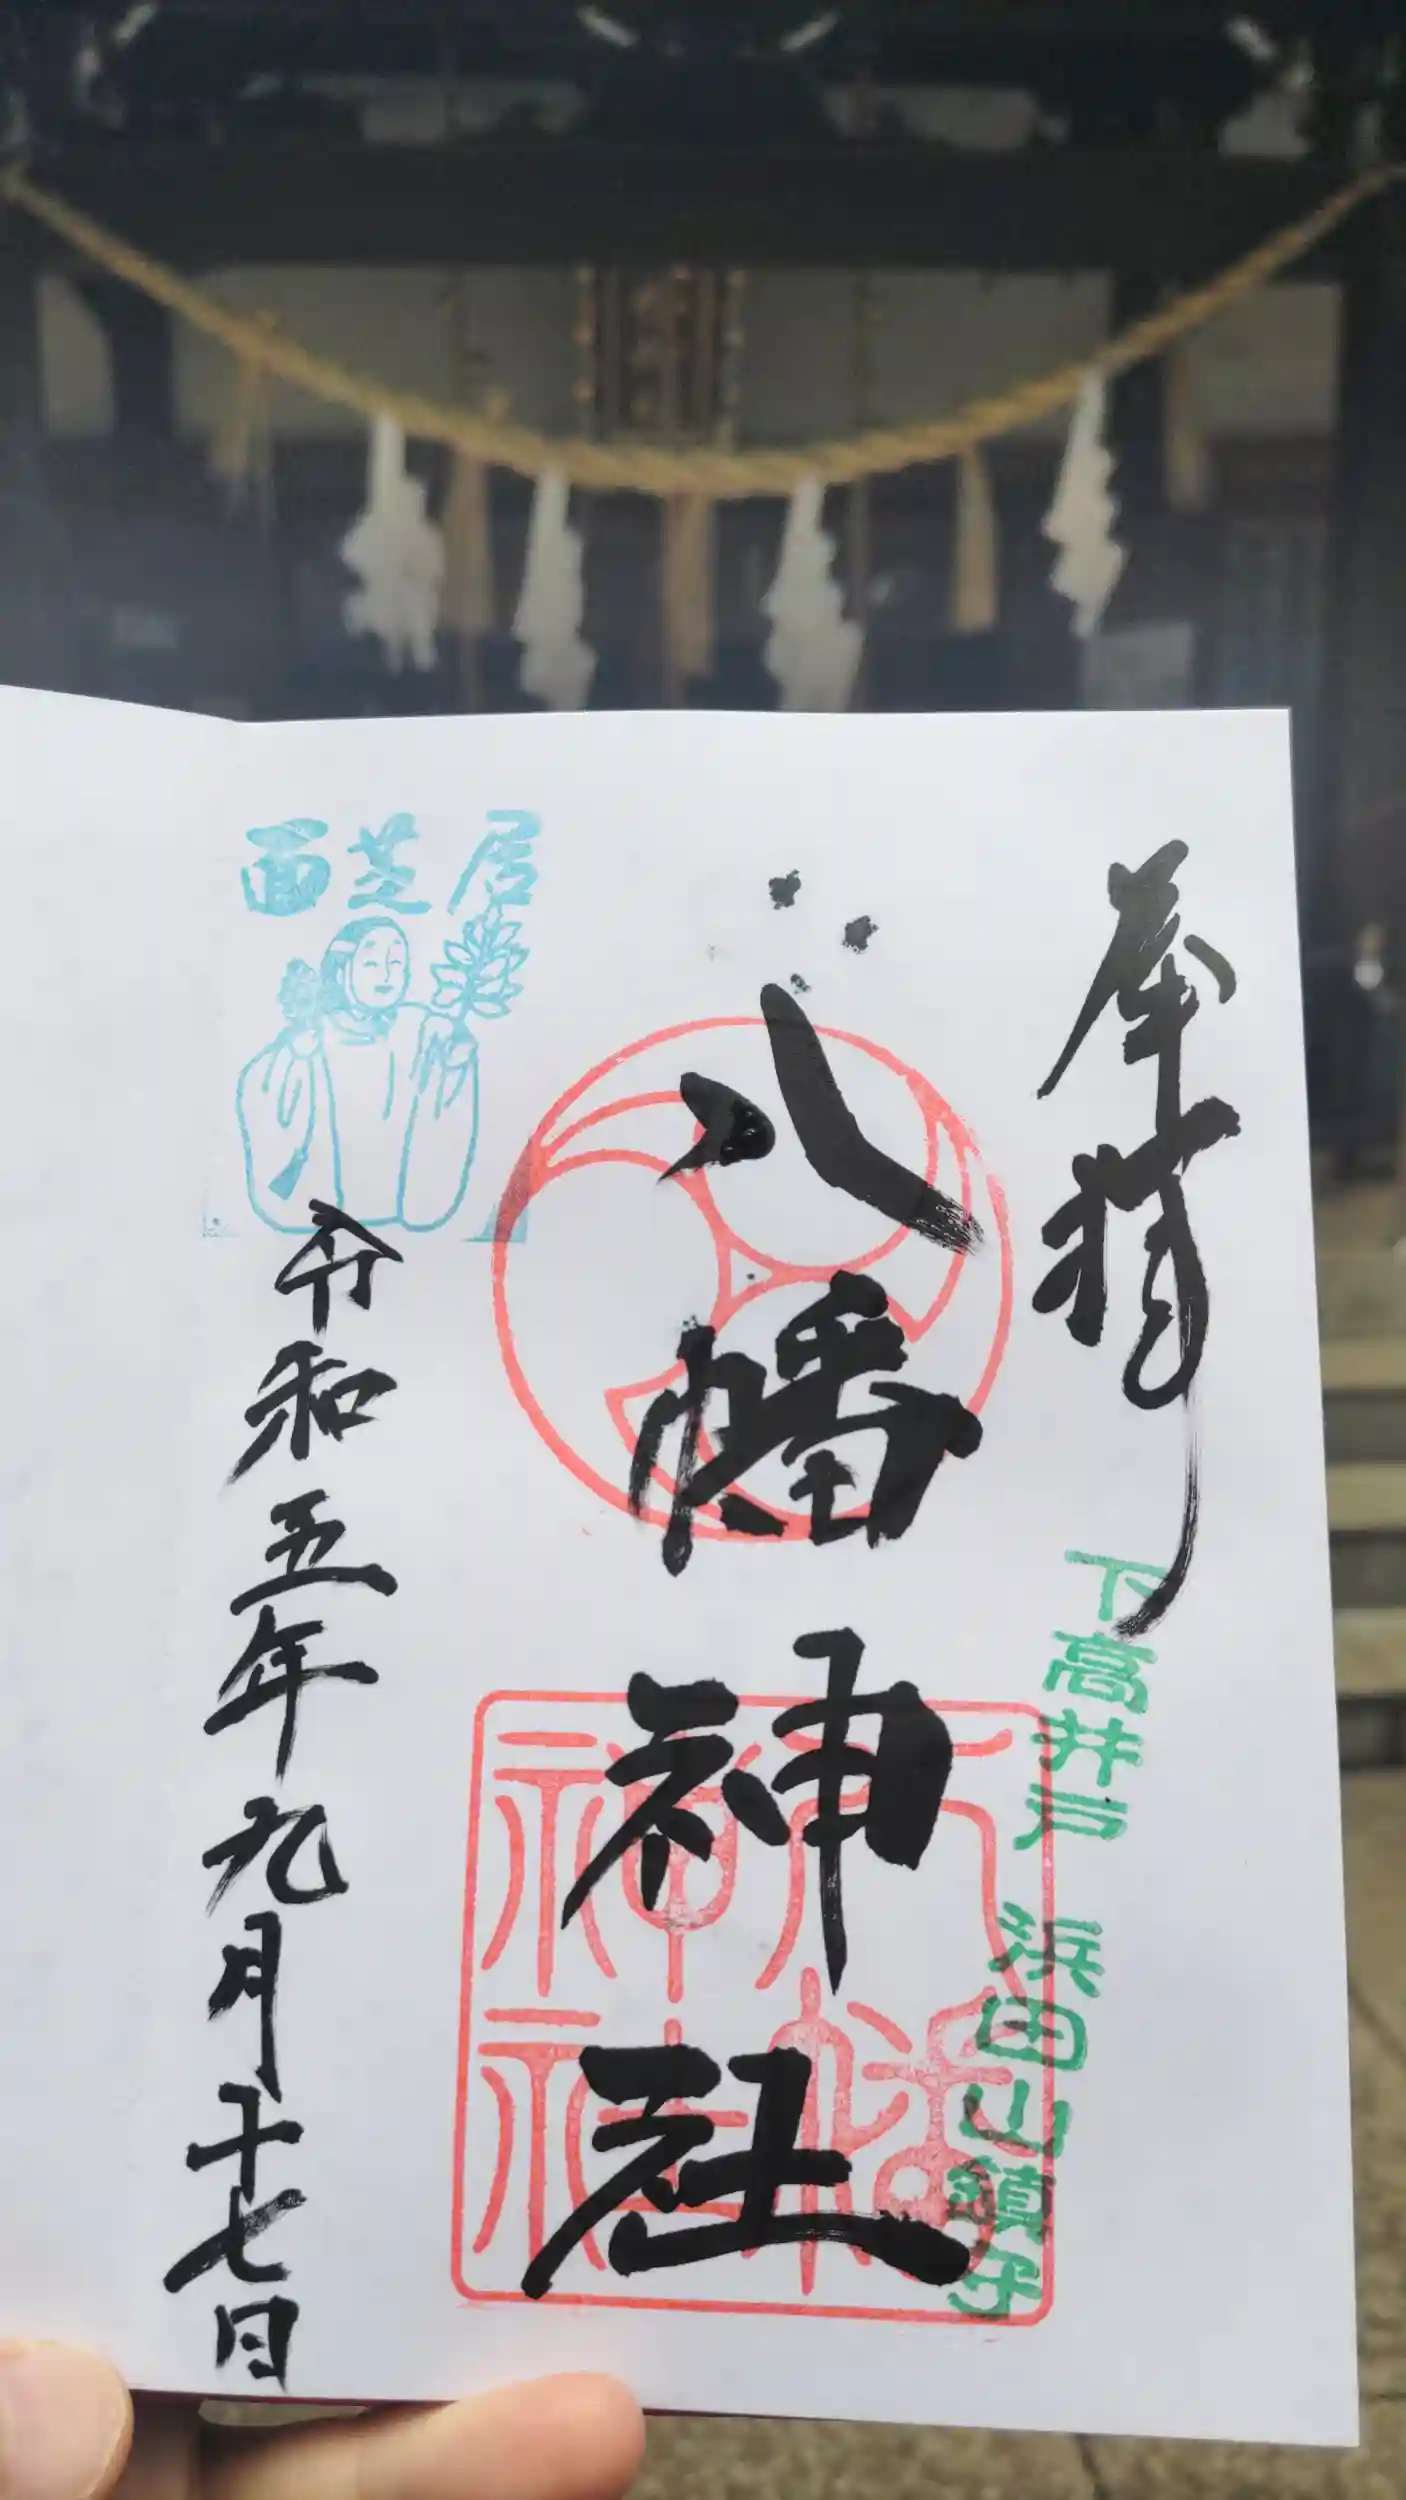 奉拝
下高井戸 浜田山鎮守
八幡神社
八幡神社
面芝居
令和五年九月十七日